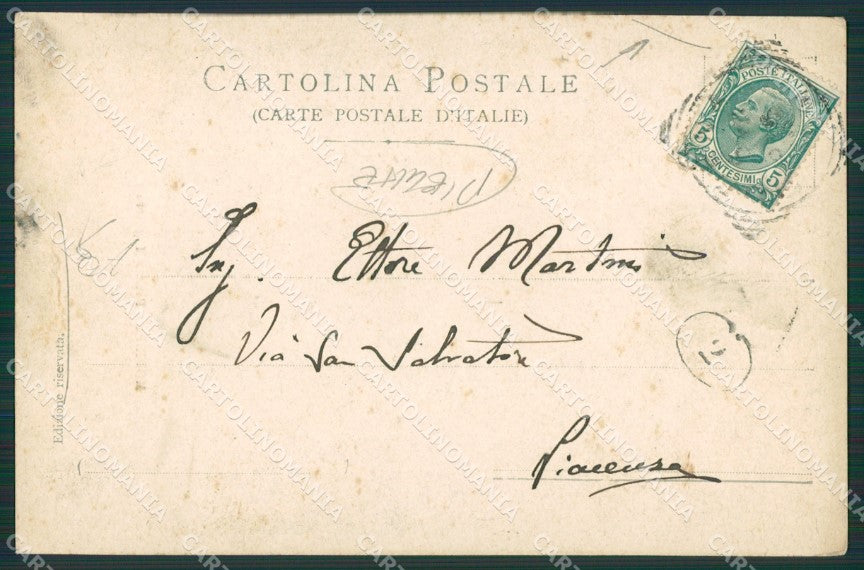 CARTOLINA POSTALE
(CARTE POSTALE D'ITALIE)
POSTE ITALIANE
5 CENTESIMI 5
Ing. Ettore Martini
Via San Salvatore
Piacenza
2
Edizione riservata.
CARTOLINOMANIA